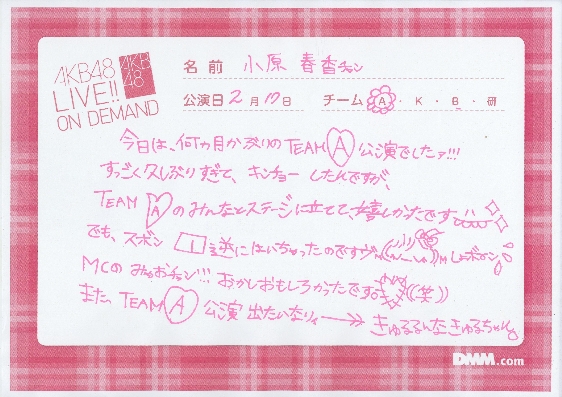 AKB48
LIVE!!
ON DEMAND
AKB
48
名前 小原春香チャン
公演日 2月17日 チーム A・K・B・研
今日は、何ヵ月かぶりのTEAM A 公演でしたァ!!!
すっごく久しぶりすぎて、キンチョーしたんですが、
TEAM A のみんなとステージに立てて、嬉しかったです
でも、ズボン 逆にはいちゃったのですヅ しょボーン
MCのみぉおチャン!!! おかしおもしろかったです。((笑))
また、TEAM A 公演 出たいなりィ → きゅるるんなきゅるちゃん。
DMM.com